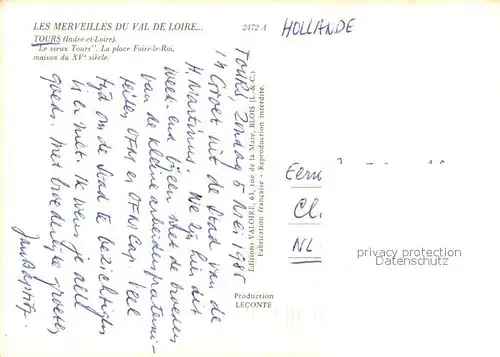 LES MERVEILLES DU VAL DE LOIRE...
TOURS (Indre-et-Loire).
"Le vieux Tours". La place Foire-le-Roi,
maison du XVᵉ siècle.
2472 A
HOLLANDE
Tours, Zondag 5 Mei 1985
'n Groet uit de stad van de
H. Martinus. We zijn dit
week-end bijeen met de broeders
van de kleine arbeidersfraterni-
teiten, OFM en OFMCap. Veel
tijd om de stad te bezichtigen
is er niet. Ik wens je alle
goeds. Met broederlijke groeten,
Jan Baptist.
Editions VALOIRE, 63, rue de la Mare, BLOIS (L.-&-C.)
Fabrication française - Reproduction interdite.
Production
LECONTE
Eerw
Cl.
NL
privacy protection
Datenschutz